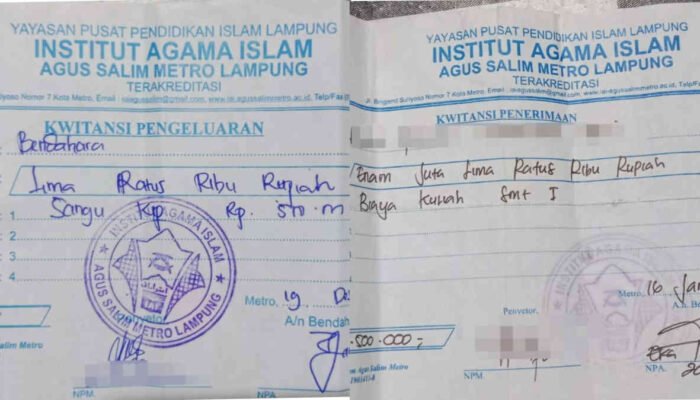 YAYASAN PUSAT PENDIDIKAN ISLAM LAMPUNG
INSTITUT AGAMA ISLAM
AGUS SALIM METRO LAMPUNG
TERAKREDITASI
Nomor 7 Kota Metro, Email : iaiagussalim@gmail.com, www.iai-agussalimmetro.ac.id, Telp/Fax
KWITANSI PENGELUARAN
: Bendahara
: Lima Ratus Ribu Rupiah
: 1. Sangu Kip Rp.
2.
3.
4.
INSTITUT AGAMA ISLAM
AGUS SALIM METRO LAMPUNG
Metro, 19 De
Penyetor
A/n Bendah
Salim Metro
NPM.
NPA.
YAYASAN PUSAT PENDIDIKAN ISLAM LAMPUNG
INSTITUT AGAMA ISLAM
AGUS SALIM METRO LAMPUNG
TERAKREDITASI
Jl. Brigjend Sutiyoso Nomor 7 Kota Metro, Email : iaiagussalim@gmail.com, www.iai-agussalimmetro.ac.id, Telp/Fax
KWITANSI PENERIMAAN
Enam Juta Lima Ratus Ribu Rupiah
Biaya Kuliah Smt I
Metro, 16 Jan
Penyetor,
A.n Be
.500.000,-
Agus Salim Metro
NPM.
NPA. 20